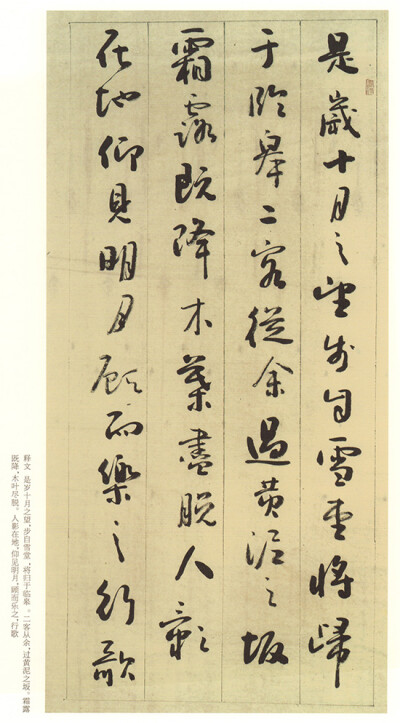 是歲十月之望步自雪堂將歸
于臨皋二客從余過黄泥之坂
霜露既降木葉盡脱人影
在地仰見明月顧而樂之行歌
释文 是岁十月之望，步自雪堂，将归于临皋。二客从余，过黄泥之坂。霜露
既降，木叶尽脱。人影在地，仰见明月，顾而乐之，行歌